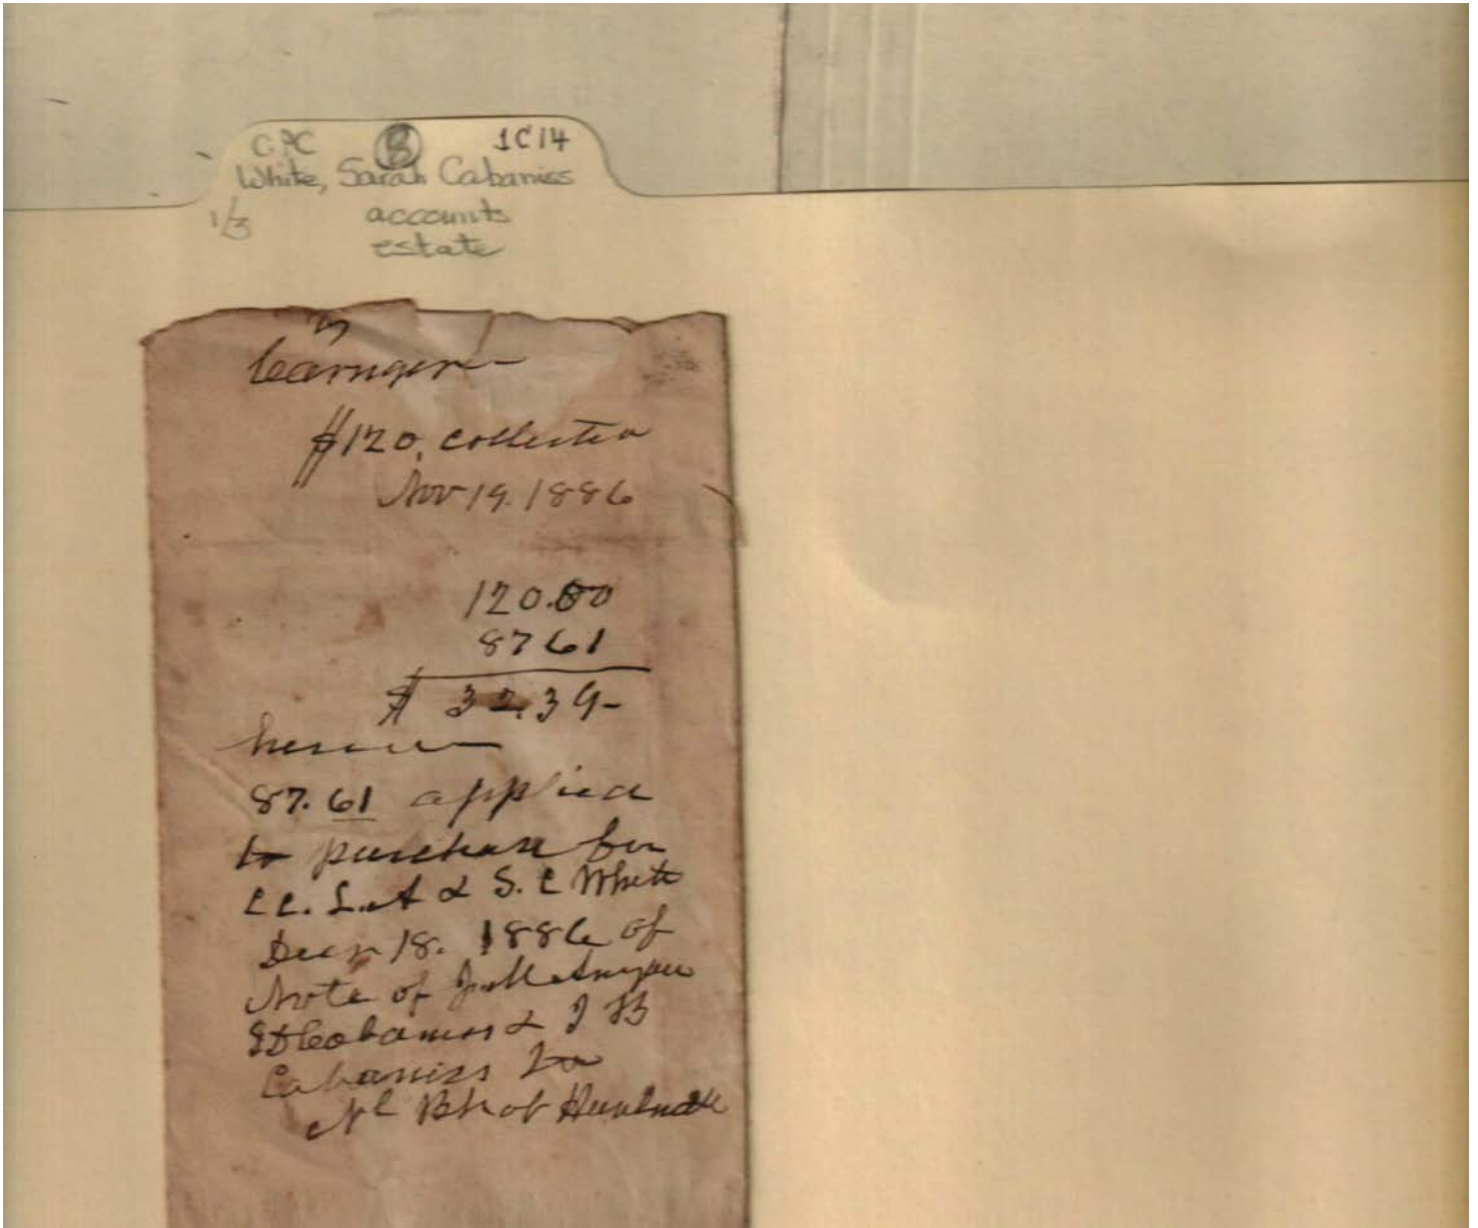 CPC (B) 1C14
White, Sarah Cabaniss
1/3 accounts
estate
$120, collected
Nov 19. 1886
120.00
8761
$ 32.39-
87.61 applied
to purchase for
S. C White
Decr 18. 1886 of
Note of
S D Cabaniss & J B
Cabaniss to
Nl Bk of Huntsville